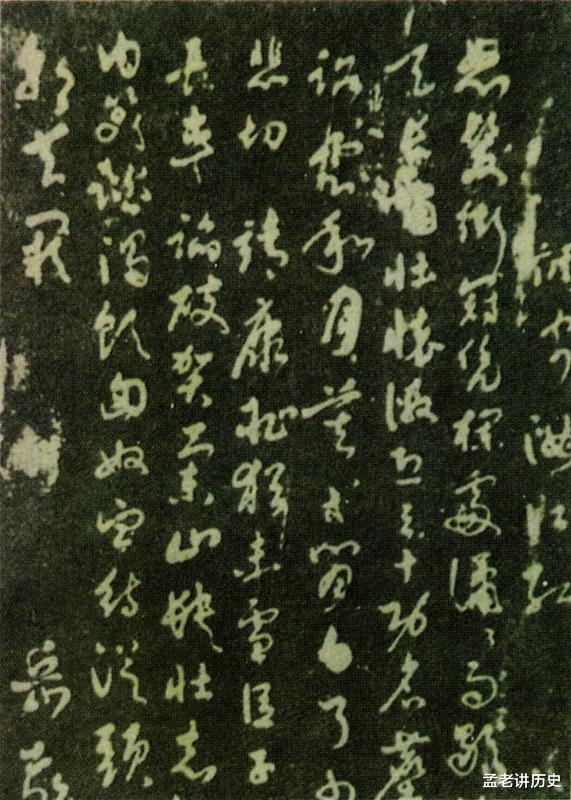 滿江紅
怒髮衝冠憑欄處瀟瀟雨歇
天長嘯壯懷激烈三十功名塵
路雲和月莫等閒白了少
悲切靖康恥猶未雪臣子
長車踏破賀蘭山缺壯志
肉笑談渴飲匈奴血待從頭
朝天闕 岳飛
孟老讲历史